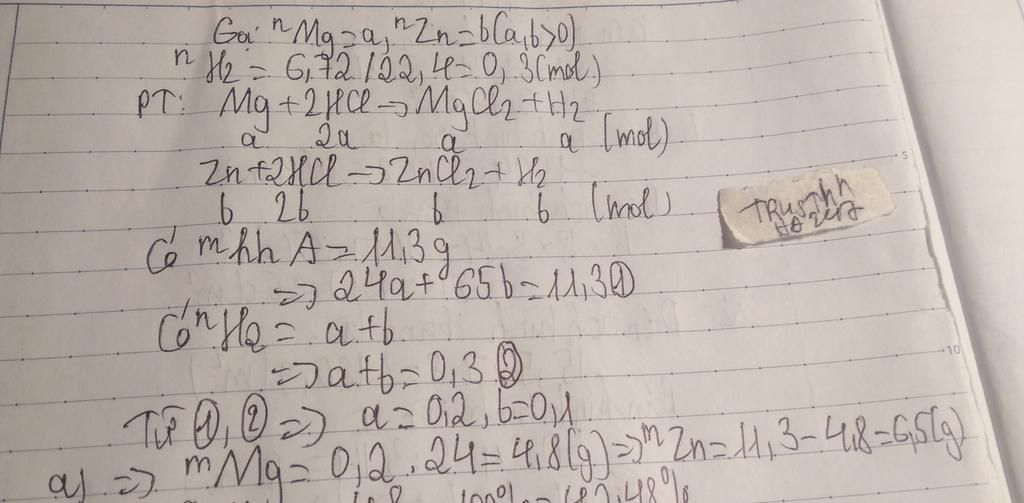 Gọi nMg=a, nZn=b(a,b>0)
nH2=6,72/22,4=0,3(mol)
PT: Mg+2HCl→MgCl2+H2
a 2a a a (mol)
Zn+2HCl→ZnCl2+H2
b 2b b b (mol)
Có mhh A=11,3g
=> 24a+65b=11,3①
Có nH2= a+b
=> a+b=0,3②
Từ ①,② => a=0,2, b=0,1
a) => mMg=0,2.24=4,8(g)=> mZn=11,3-4,8=6,5(g)
100%=42,48%
5
10